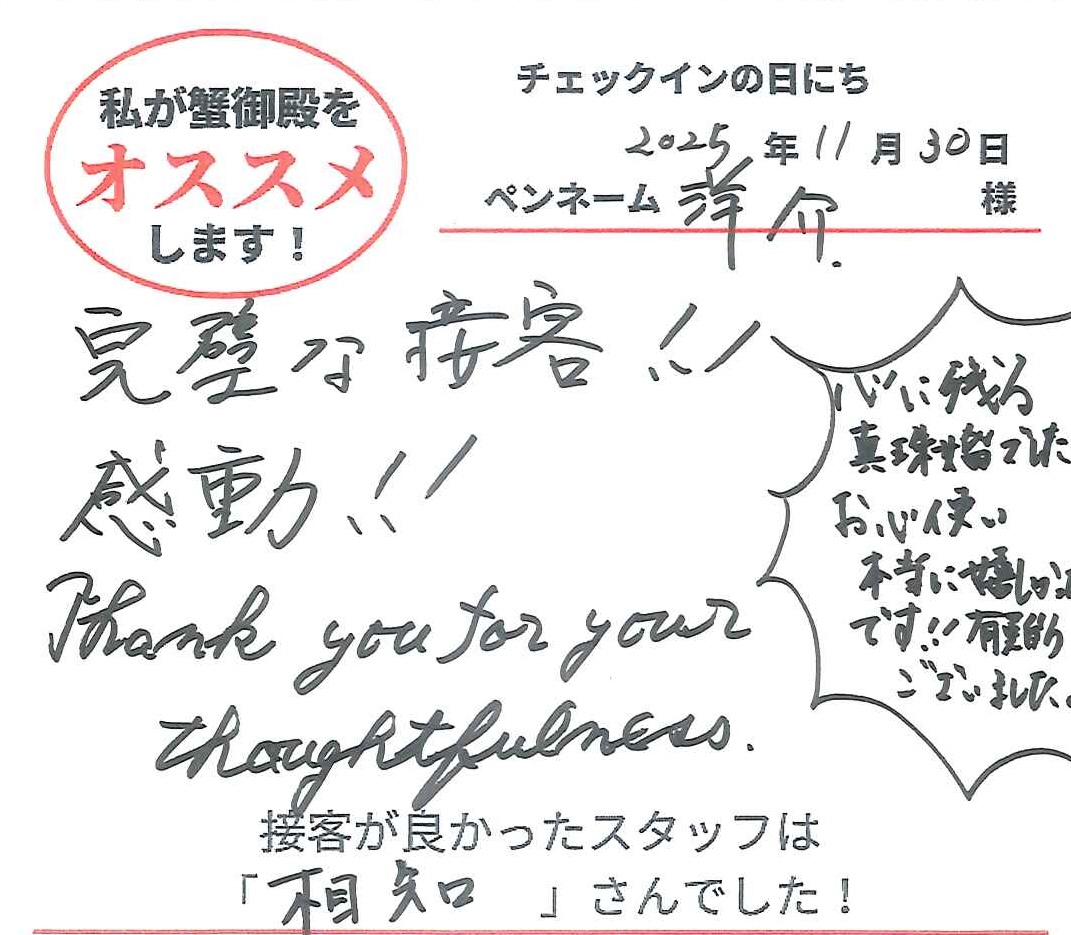 私が蟹御殿を
オススメ
します！
チェックインの日にち
2025年11月30日
ペンネーム 洋介 様
完璧な接客!!
感動!!
Thank you for your
thoughtfulness.
心に残る
真珠婚でした
お心使い
本当に嬉しかった
です!! 有難う
ございました。
接客が良かったスタッフは
「相知」さんでした！